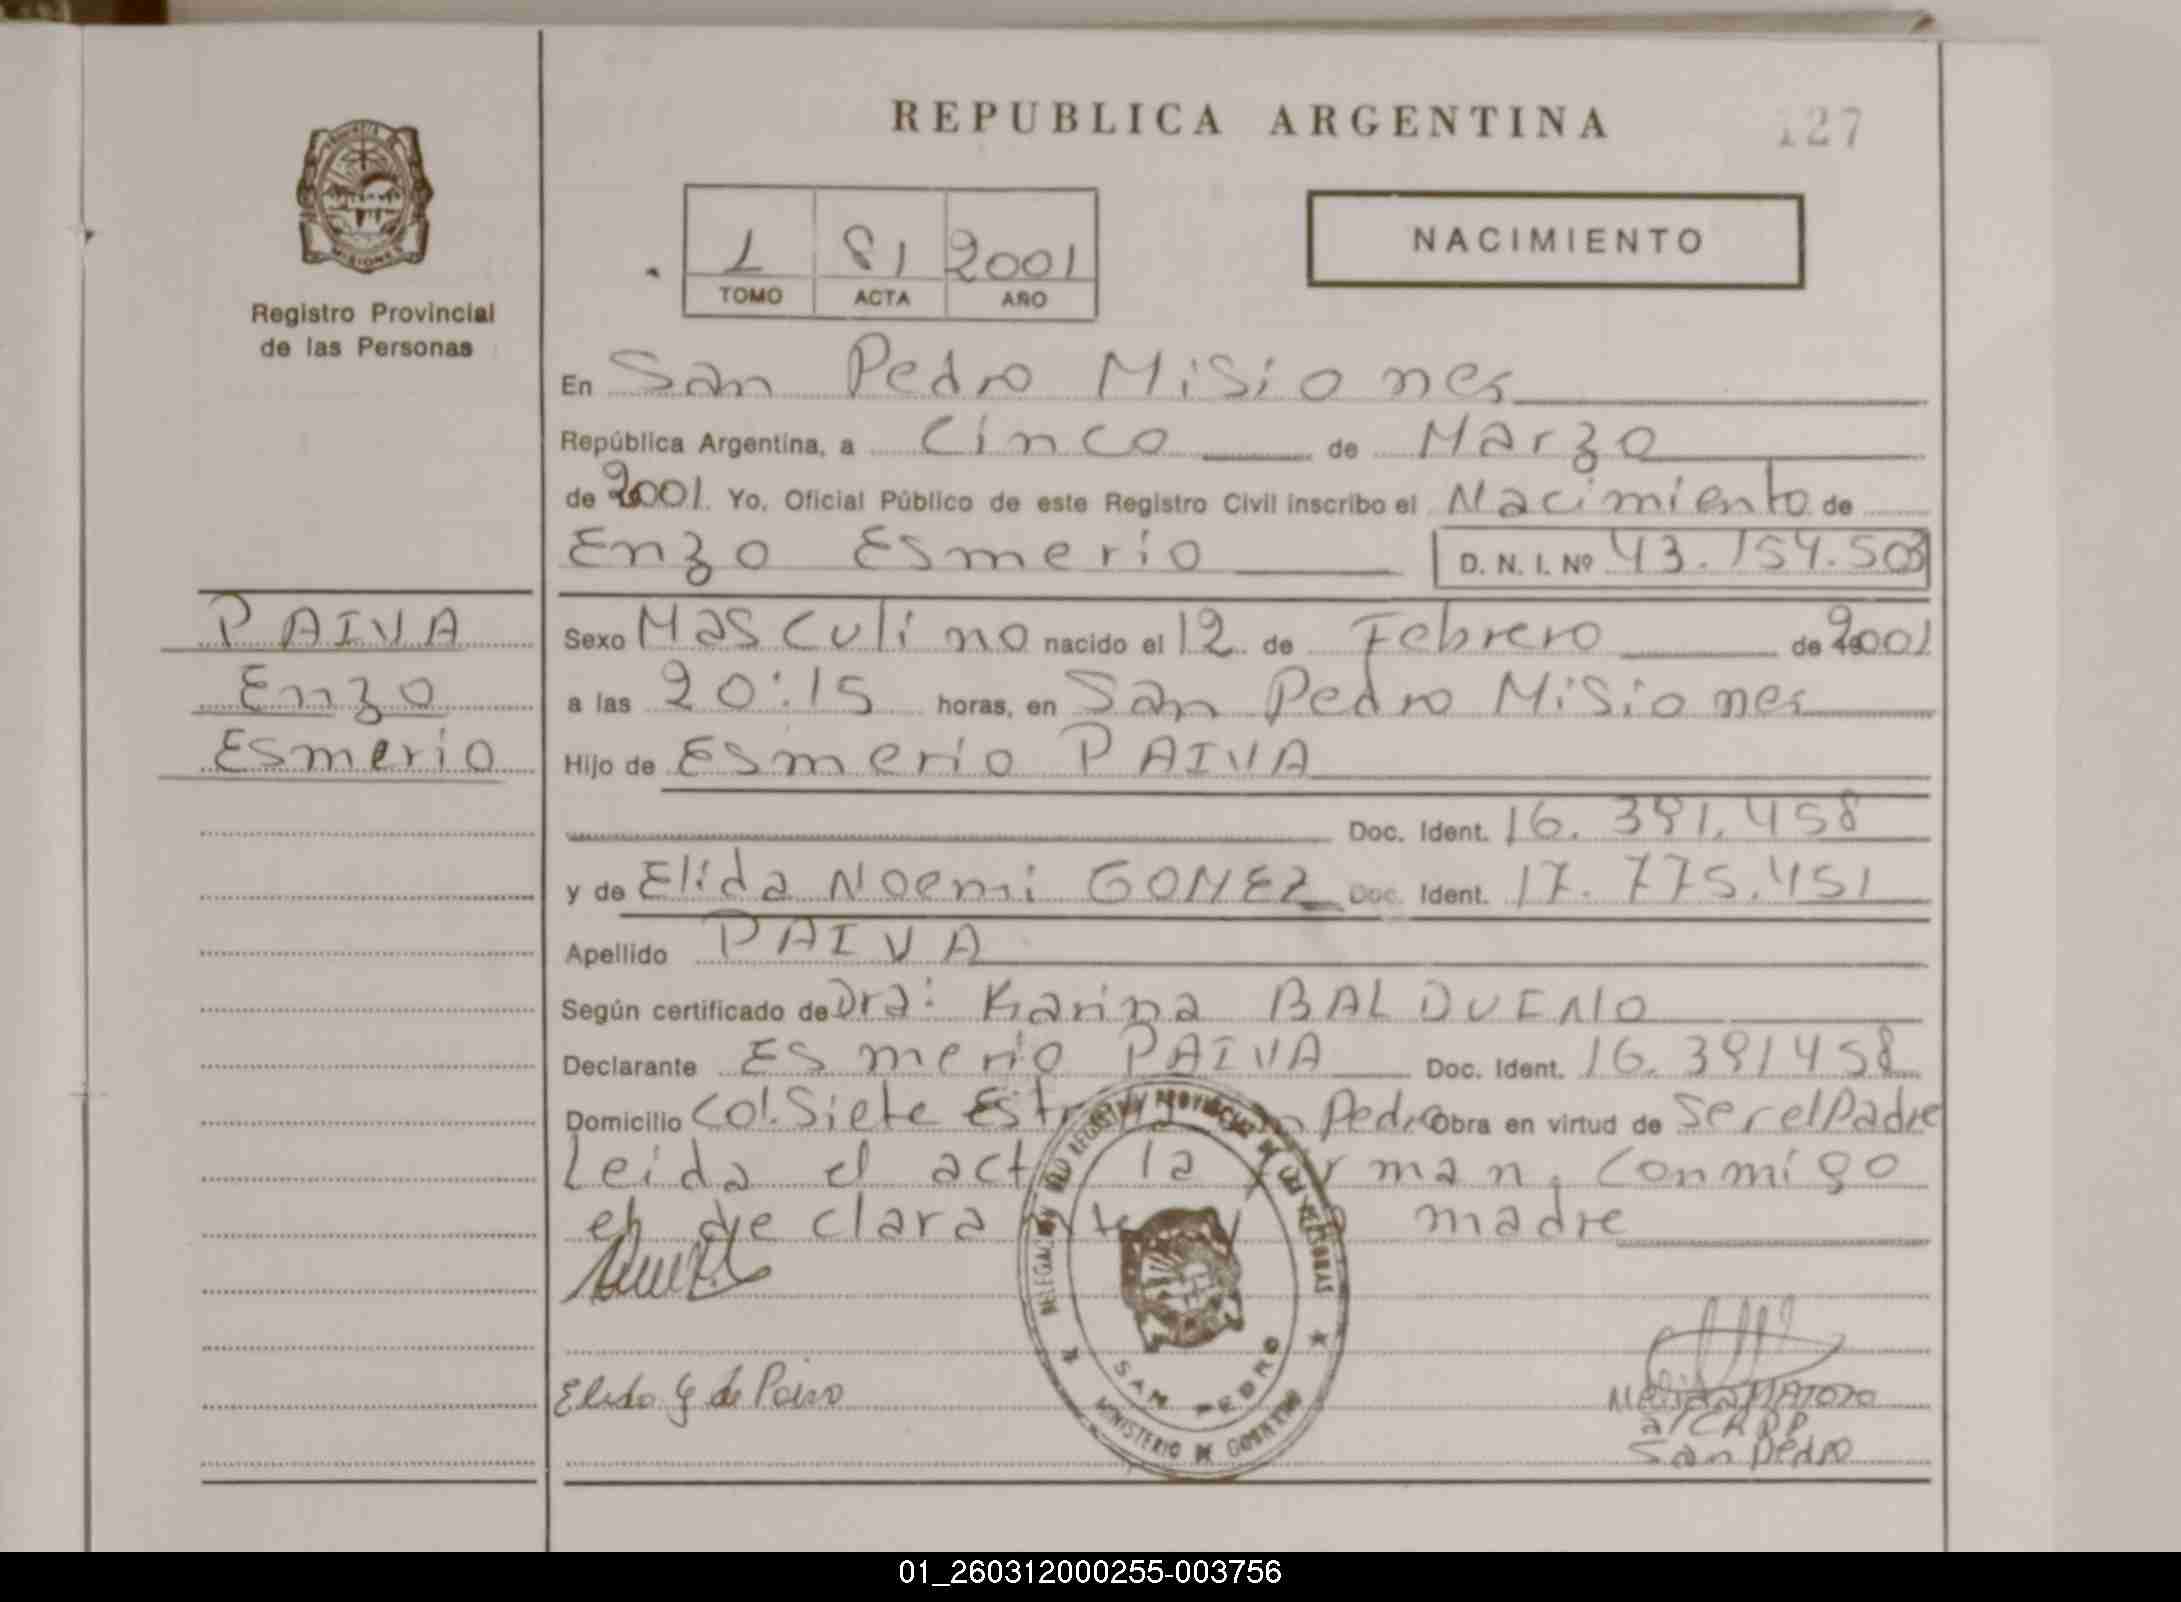 REPUBLICA ARGENTINA
127
Registro Provincial
de las Personas
1 81 2001
TOMO ACTA AÑO
NACIMIENTO
En San Pedro Misiones
República Argentina, a Cinco de Marzo
de 2001. Yo, Oficial Público de este Registro Civil inscribo el Nacimiento de
Enzo Esmerio D. N. I. Nº 43.154.503
PAIVA
Enzo
Esmerio
Sexo Masculino nacido el 12 de Febrero de 2001
a las 20:15 horas, en San Pedro Misiones
Hijo de Esmerio PAIVA
Doc. Ident. 16.391.458
y de Elida Noemi GOMEZ Doc. Ident. 17.775.451
Apellido PAIVA
Según certificado de Dra: Karina BALDUENO
Declarante Esmerio PAIVA Doc. Ident. 16.391458
Domicilio Col. Siete Pedro Obra en virtud de Ser el Padre
Leida el la conmigo
madre
DELEGACION REGISTRO PROVINCIAL DE LAS PERSONAS
SAN PEDRO
MINISTERIO DE GOBIERNO
Elida G de Paiva
San Pedro
01_260312000255-003756